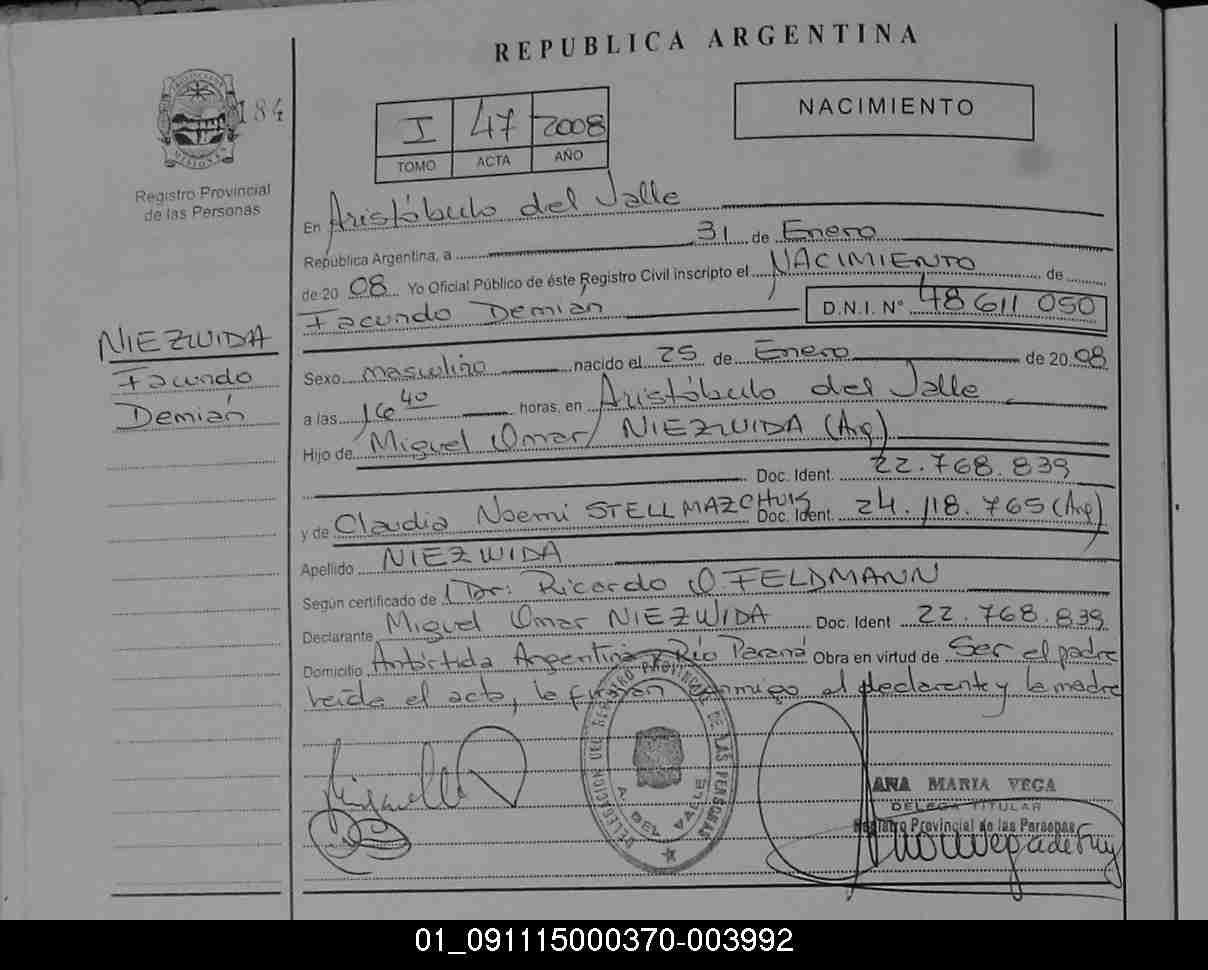 REPUBLICA ARGENTINA
184
Registro Provincial
de las Personas
I 47 2008
TOMO ACTA AÑO
NACIMIENTO
En Aristóbulo del Valle
República Argentina, a 31 de Enero
de 20 08 Yo Oficial Público de éste Registro Civil inscripto el NACIMIENTO de
Facundo Demián D.N.I. Nº 48 611 050
NIEZWIDA
Facundo
Demián
Sexo masculino nacido el 25 de Enero de 20 08
a las 16 40 horas, en Aristóbulo del Valle
Hijo de Miguel Omar NIEZWIDA (Arg)
Doc. Ident. 22.768.839
y de Claudia Noemi STELLMAZCHUK Doc. Ident. 24.118.765 (Arg)
Apellido NIEZWIDA
Según certificado de Dr: Ricardo O FELDMANN
Declarante Miguel Omar NIEZWIDA Doc. Ident 22.768.839
Domicilio Antártida Argentina Río Paraná Obra en virtud de Ser el padre
leída el acta, la firman conmigo el declarante y la madre
DELEGACION DEL REGISTRO PROVINCIAL DE LAS PERSONAS
A. DEL VALLE
ANA MARIA VEGA
DELEGA TITULAR
Registro Provincial de las Personas
01_091115000370-003992